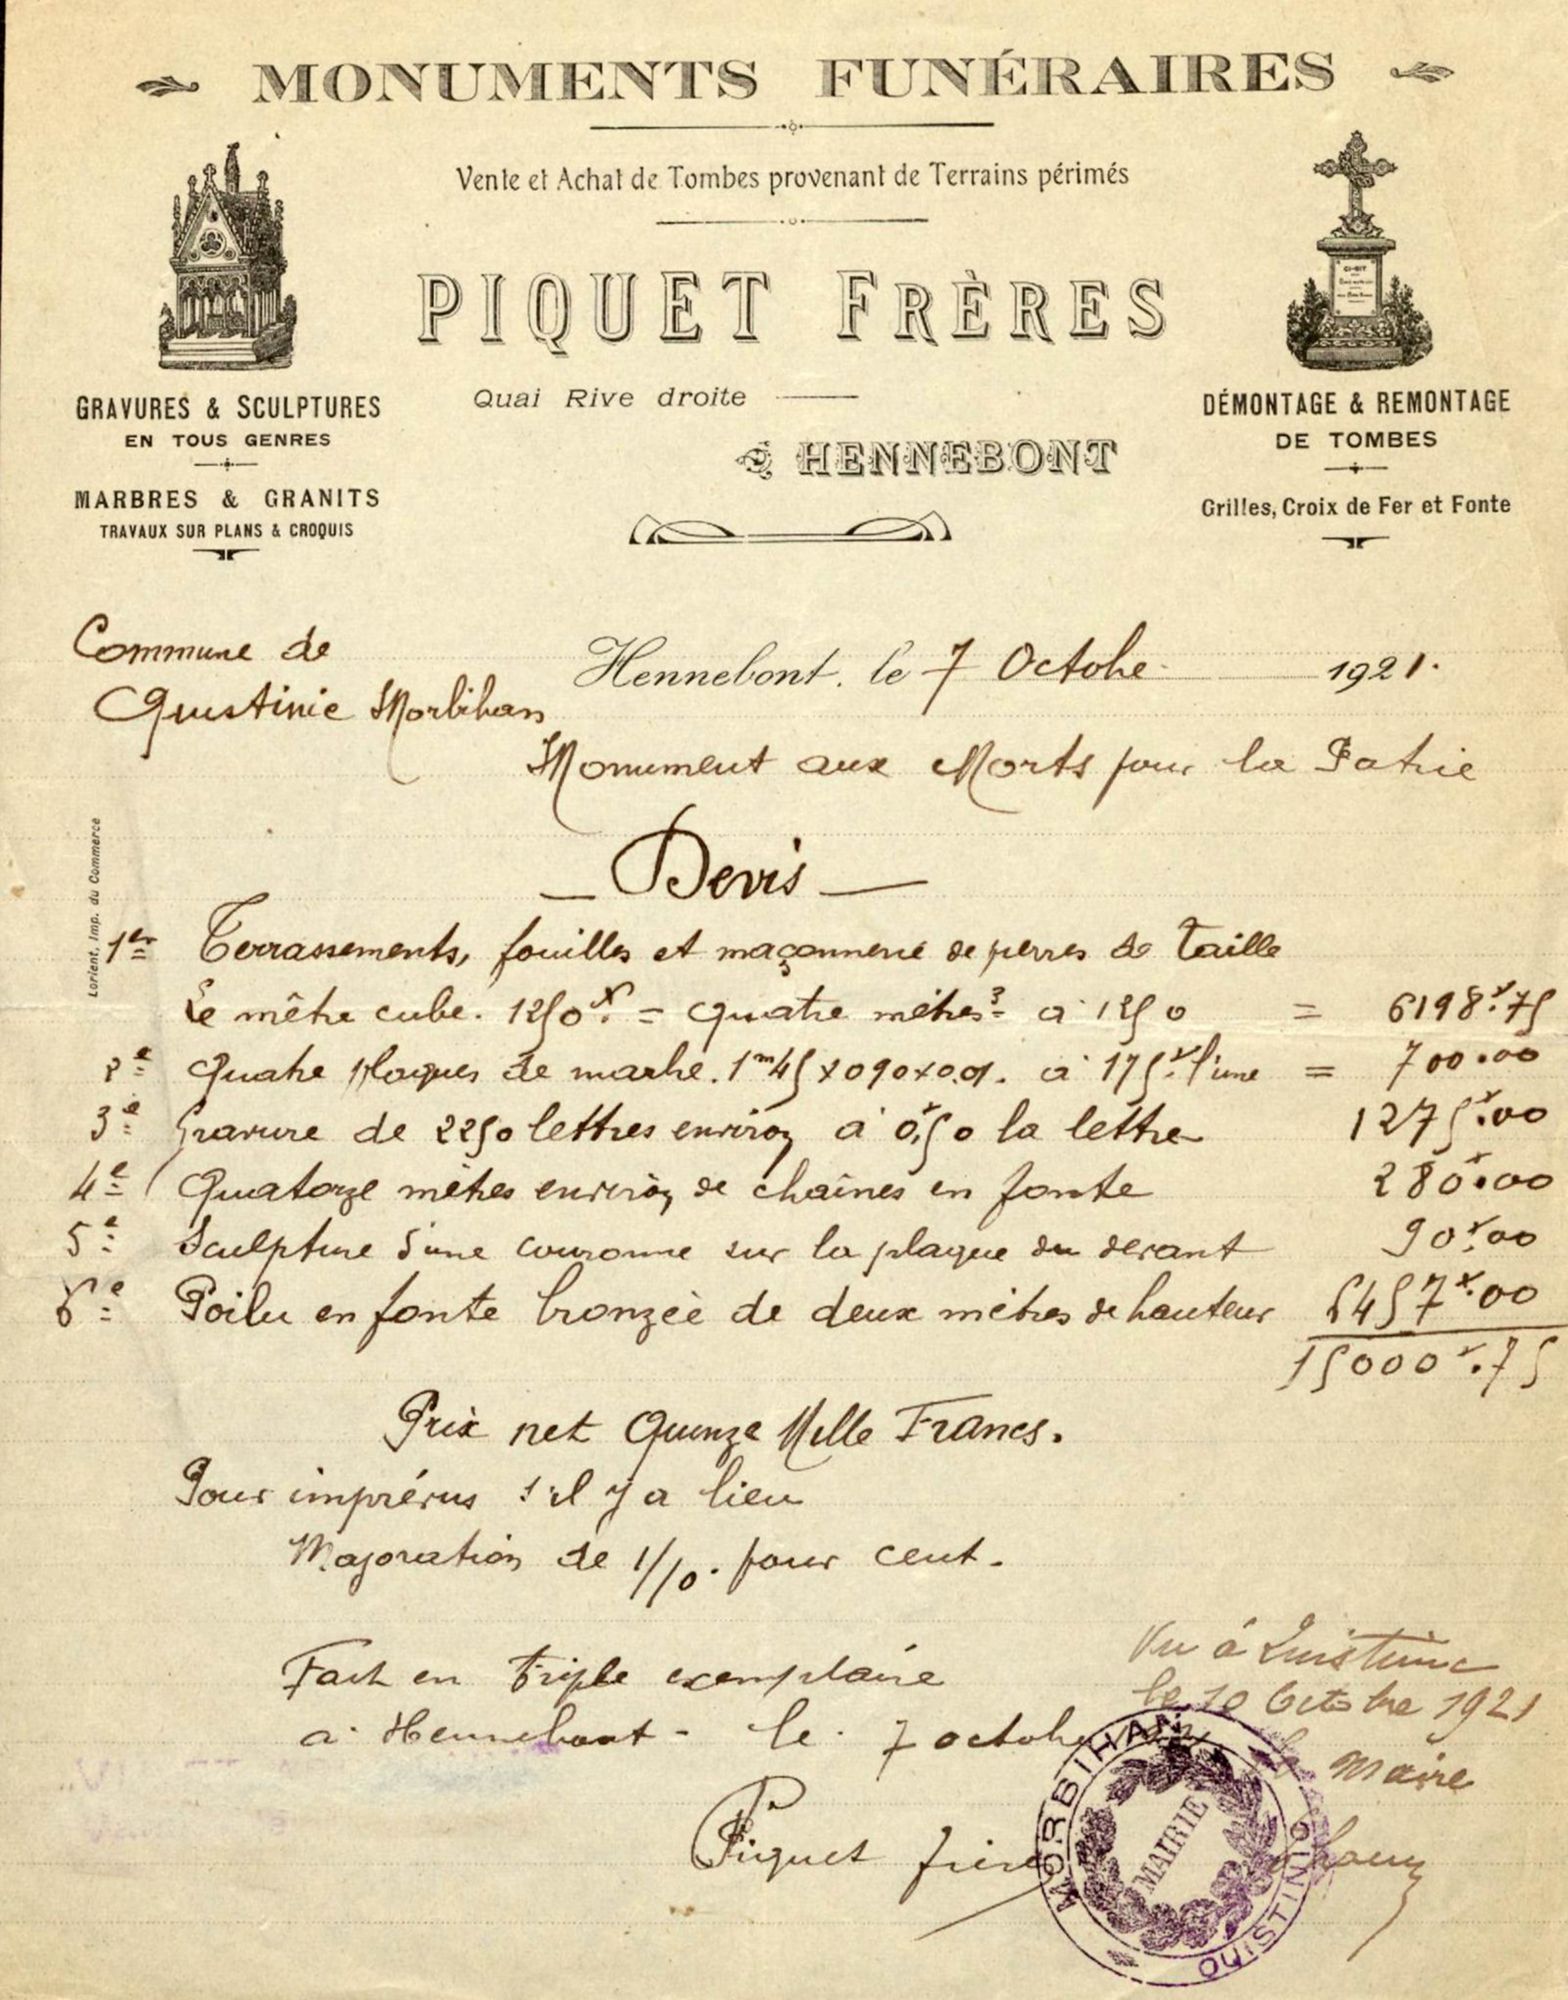 MONUMENTS FUNÉRAIRES
Vente et Achat de Tombes provenant de Terrains périmés
PIQUET FRÈRES
Quai Rive droite
HENNEBONT
GRAVURES & SCULPTURES
EN TOUS GENRES
MARBRES & GRANITS
TRAVAUX SUR PLANS & CROQUIS
DÉMONTAGE & REMONTAGE
DE TOMBES
Grilles, Croix de Fer et Fonte
CI-GIT
Commune de
Quistinic Morbihan
Hennebont, le 7 Octobre 1921.
Monument aux Morts pour la Patrie
Lorient, Imp. du Commerce
— Devis —
1er Terrassements, fouilles et maçonnerie de pierres de taille
Le mètre cube. 1250f. = quatre mètres3 à 1250 = 6198f.75
2e Quatre plaques de marbre. 1m45 x 090 x 0.01. à 175f. l'une = 700.00
3e Gravure de 2250 lettres environ à 0f,50 la lettre 1275f.00
4e Quatorze mètres environ de chaînes en fonte 280f.00
5e Sculpture d'une couronne sur la plaque du devant 90f.00
6e Poilu en fonte bronzée de deux mètres de hauteur 6457f.00
15000f.75
Prix net Quinze Mille Francs.
Pour imprévus s'il y a lieu
Majoration de 1/10. pour cent.
Fait en triple exemplaire
à Hennebont - le 7 octobre
Piquet frères
Vu à Quistinic
le 10 Octobre 1921
le Maire
MORBIHAN
MAIRIE
QUISTINIC